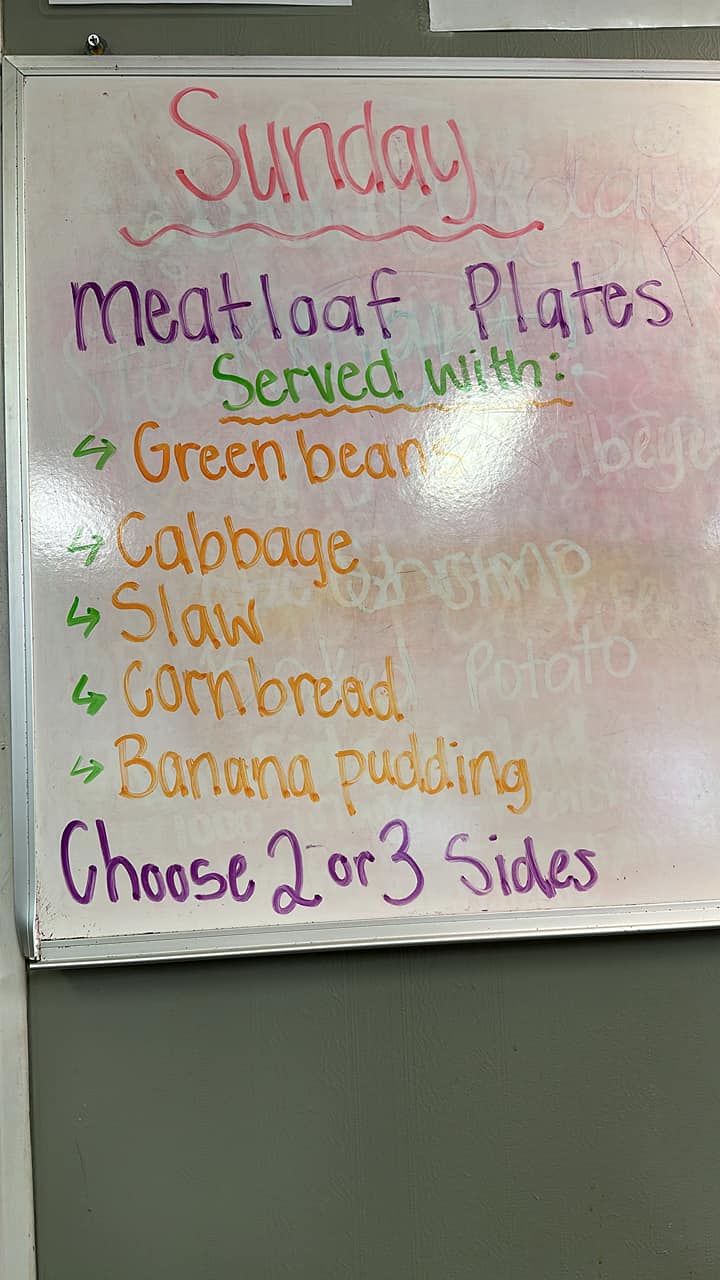 Sunday
Meatloaf Plates
Served with:
↳ Green beans
↳ Cabbage
↳ Slaw
↳ Cornbread
↳ Banana pudding
Choose 2 or 3 Sides